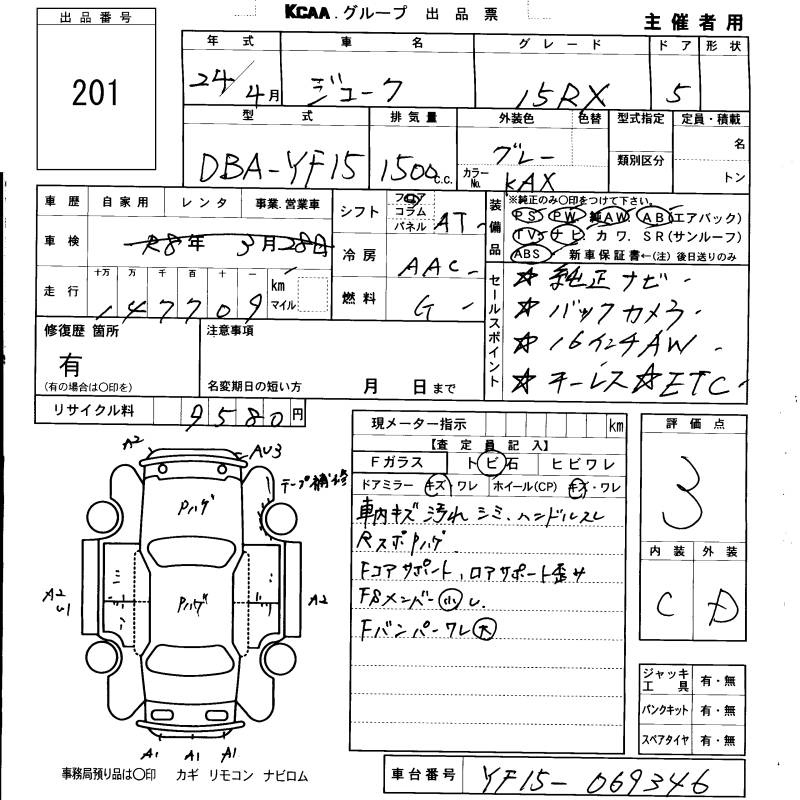 KCAA.グループ 出品票
主催者用
出品番号
201
年式 車名 グレード ドア 形状
24/4月 ジューク 15RX 5
型式 排気量 外装色 色替 型式指定 定員・積載
DBA-YF15 1500c.c. グレー 名
カラーNo. KAX 類別区分 トン
車歴 自家用 レンタ 事業.営業車
車検 R8年3月28日
走行 十万 万 千 百 十 一
147709 km マイル
シフト フロア コラム パネル AT
冷房 AAC
燃料 G
装備品
※純正のみ〇印をつけて下さい。
PS PW 純AW AB(エアバック)
TV ナビ カワ.SR(サンルーフ)
ABS 新車保証書←(注)後日送りのみ
セールスポイント
☆ 純正ナビ
☆ バックカメラ
☆ 16インチAW
☆ キーレス ☆ETC
修復歴 箇所
有
(有の場合は〇印を)
注意事項
名変期日の短い方 月 日まで
リサイクル料 9580円
現メーター指示 km
【査定員記入】
Fガラス トビ石 ヒビワレ
ドアミラー キズ ワレ ホイール(CP) キズ・ワレ
車内キズ 汚れ シミ、ハンドルスレ
RスポPハゲ
Fコアサポート、ロアサポート歪サ
FSメンバー小
Fバンパーワレ大
評価点
3
内装 外装
C D
ジャッキ工具 有・無
パンクキット 有・無
スペアタイヤ 有・無
A2
AU3
テープ補修
Pハゲ
A2
U1
Pハゲ
A2
A1 A1 A1
事務局預り品は〇印 カギ リモコン ナビロム
車台番号 YF15-069346